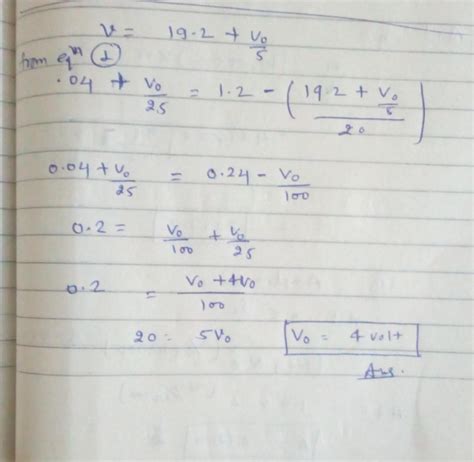 V = 19.2 + V₀/5
from eqⁿ ①
.04 + V₀/25 = 1.2 - ((19.2 + V₀/5)/20)
0.04 + V₀/25 = 0.24 - V₀/100
0.2 = V₀/100 + V₀/25
0.2 = (V₀ + 4V₀)/100
20 = 5V₀ V₀ = 4 volt
Ans.